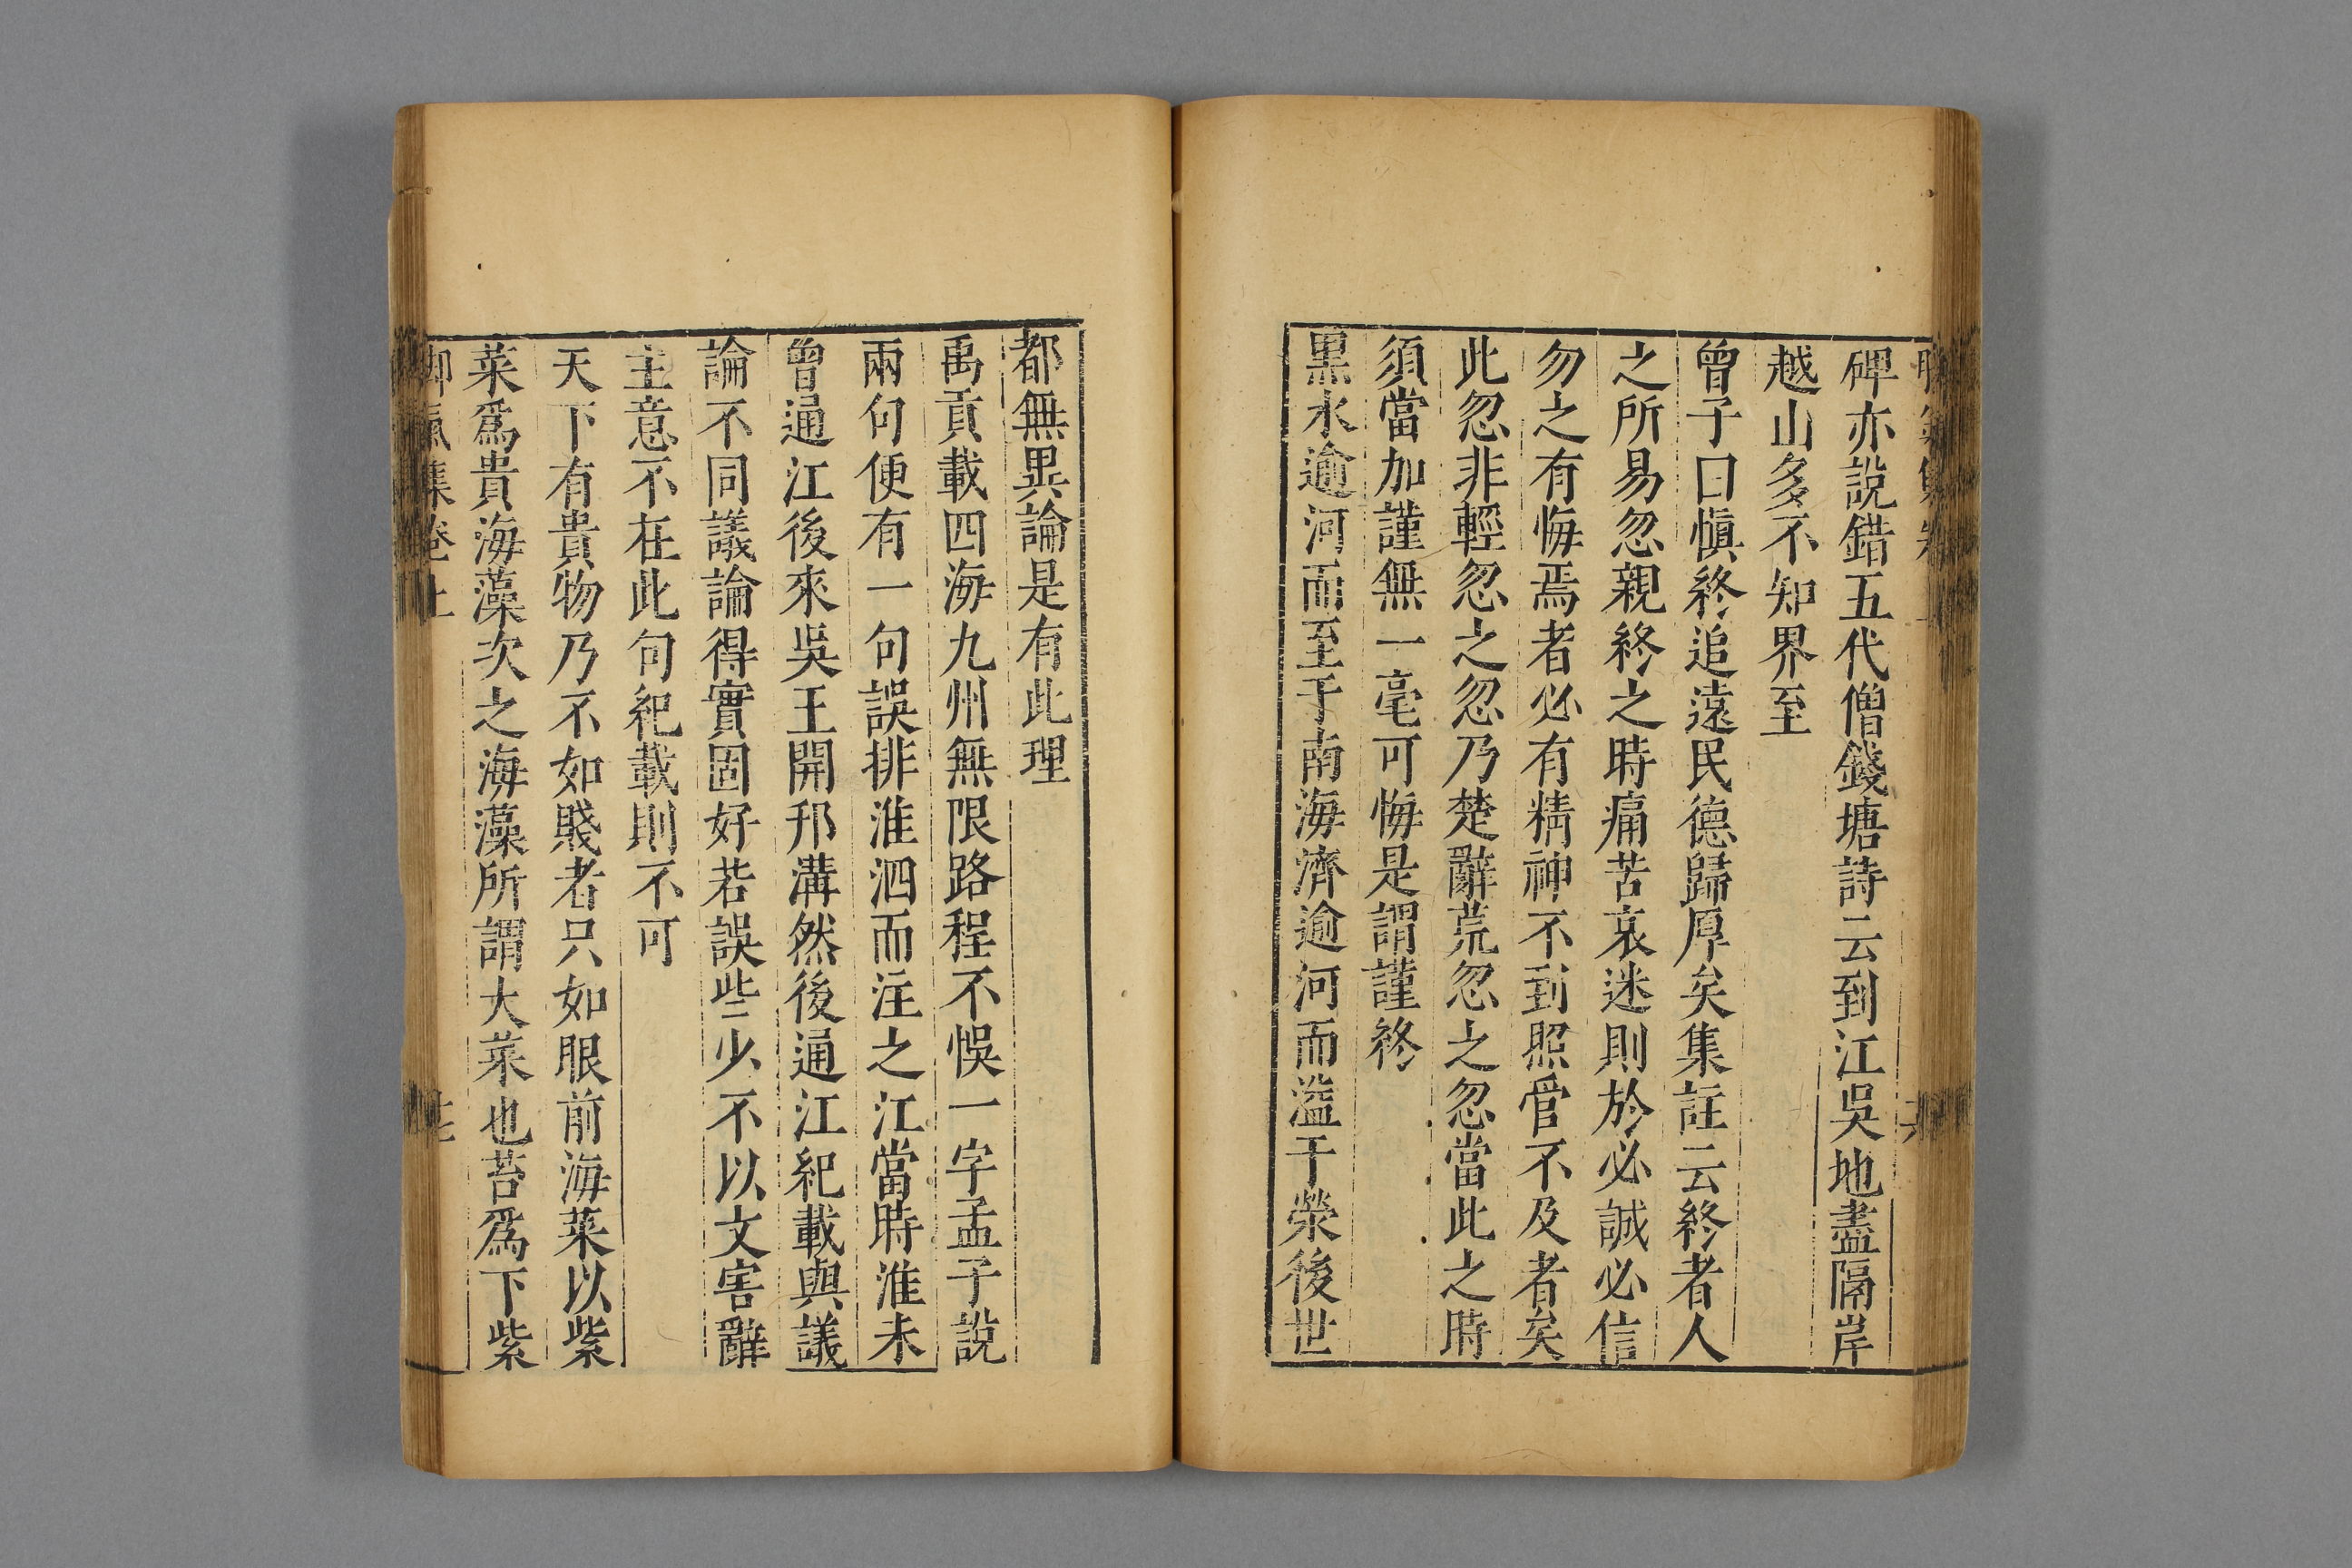 碑亦說錯五代僧錢塘詩云到江吳地盡隔岸
越山多不知界至
曾子曰愼終追遠民德歸厚矣集註云終者人
之所易忽親終之時痛苦哀迷則於必誠必信
勿之有悔焉者必有精神不到照管不及者矣
此忽非輕忽之忽乃楚辭荒忽之忽當此之時
須當加謹無一毫可悔是謂謹終
黒水逾河而至于南海濟逾河而溢于滎後世
都無異論是有此理
禹貢載四海九州無限路程不悞一字孟子說
兩句便有一句誤排淮泗而注之江當時淮未
曾通江後來吳王開邗溝然後通江紀載與議
論不同議論得實固好若誤些少不以文害辭
主意不在此句紀載則不可
天下有貴物乃不如賤者只如眼前海菜以紫
菜爲貴海藻次之海藻所謂大菜也苔爲下紫
脚氣集卷上 十七